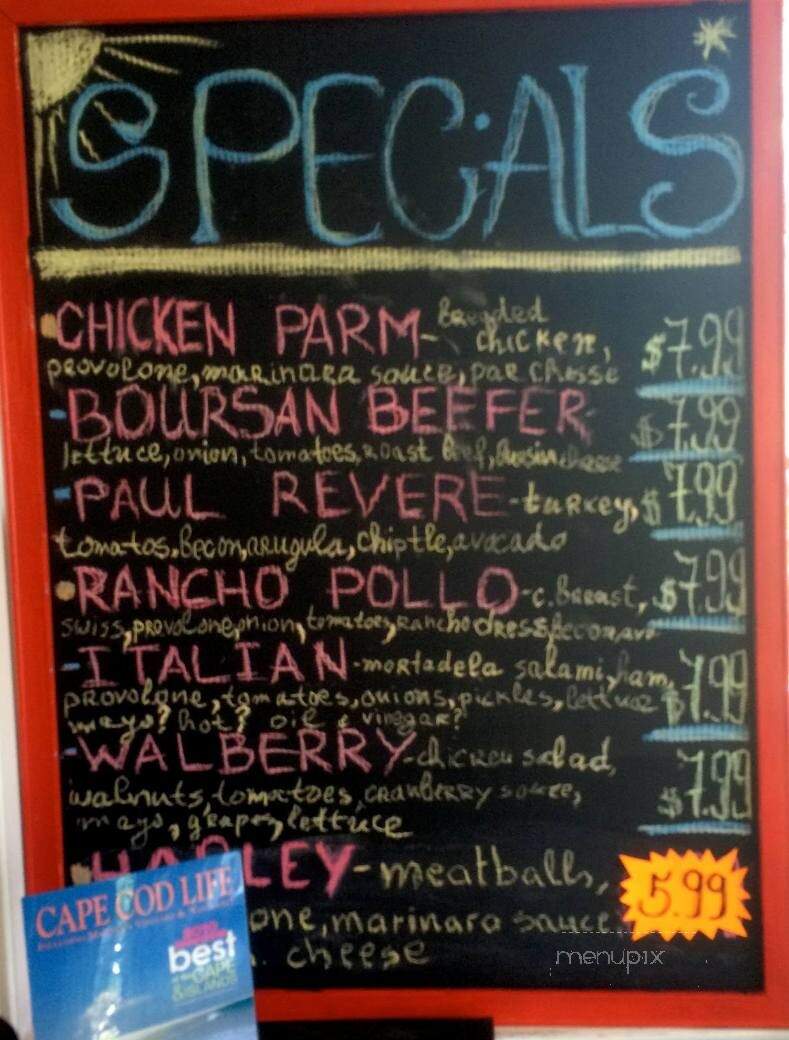 SPECiALS
CHICKEN PARM- Breaded
chicken, $7.99
provolone, marinara sauce, par cheese
-BOURSAN BEEFER- $7.99
lettuce, onion, tomatoes, roast beef, Boursin cheese
-PAUL REVERE-turkey, $7.99
tomatos, Becon, arugula, chiptle, avocado
RANCHO POLLO-c. Breast, $7.99
swiss, provolone, onion, tomatoes, Rancho dress, becon, avo
-ITALIAN-mortadela salami, ham,
provolone, tomatoes, onions, pickles, lettuce $7.99
mayo? hot? oil & vinegar?
-WALBERRY-chicken salad,
walnuts, tomatoes, cranberry sauce, $7.99
mayo, grapes, lettuce
HARLEY-meatballs, 5.99
one, marinara sauce
. cheese
CAPE COD LIFE
best
CAPE
&ISLANDS
menupix